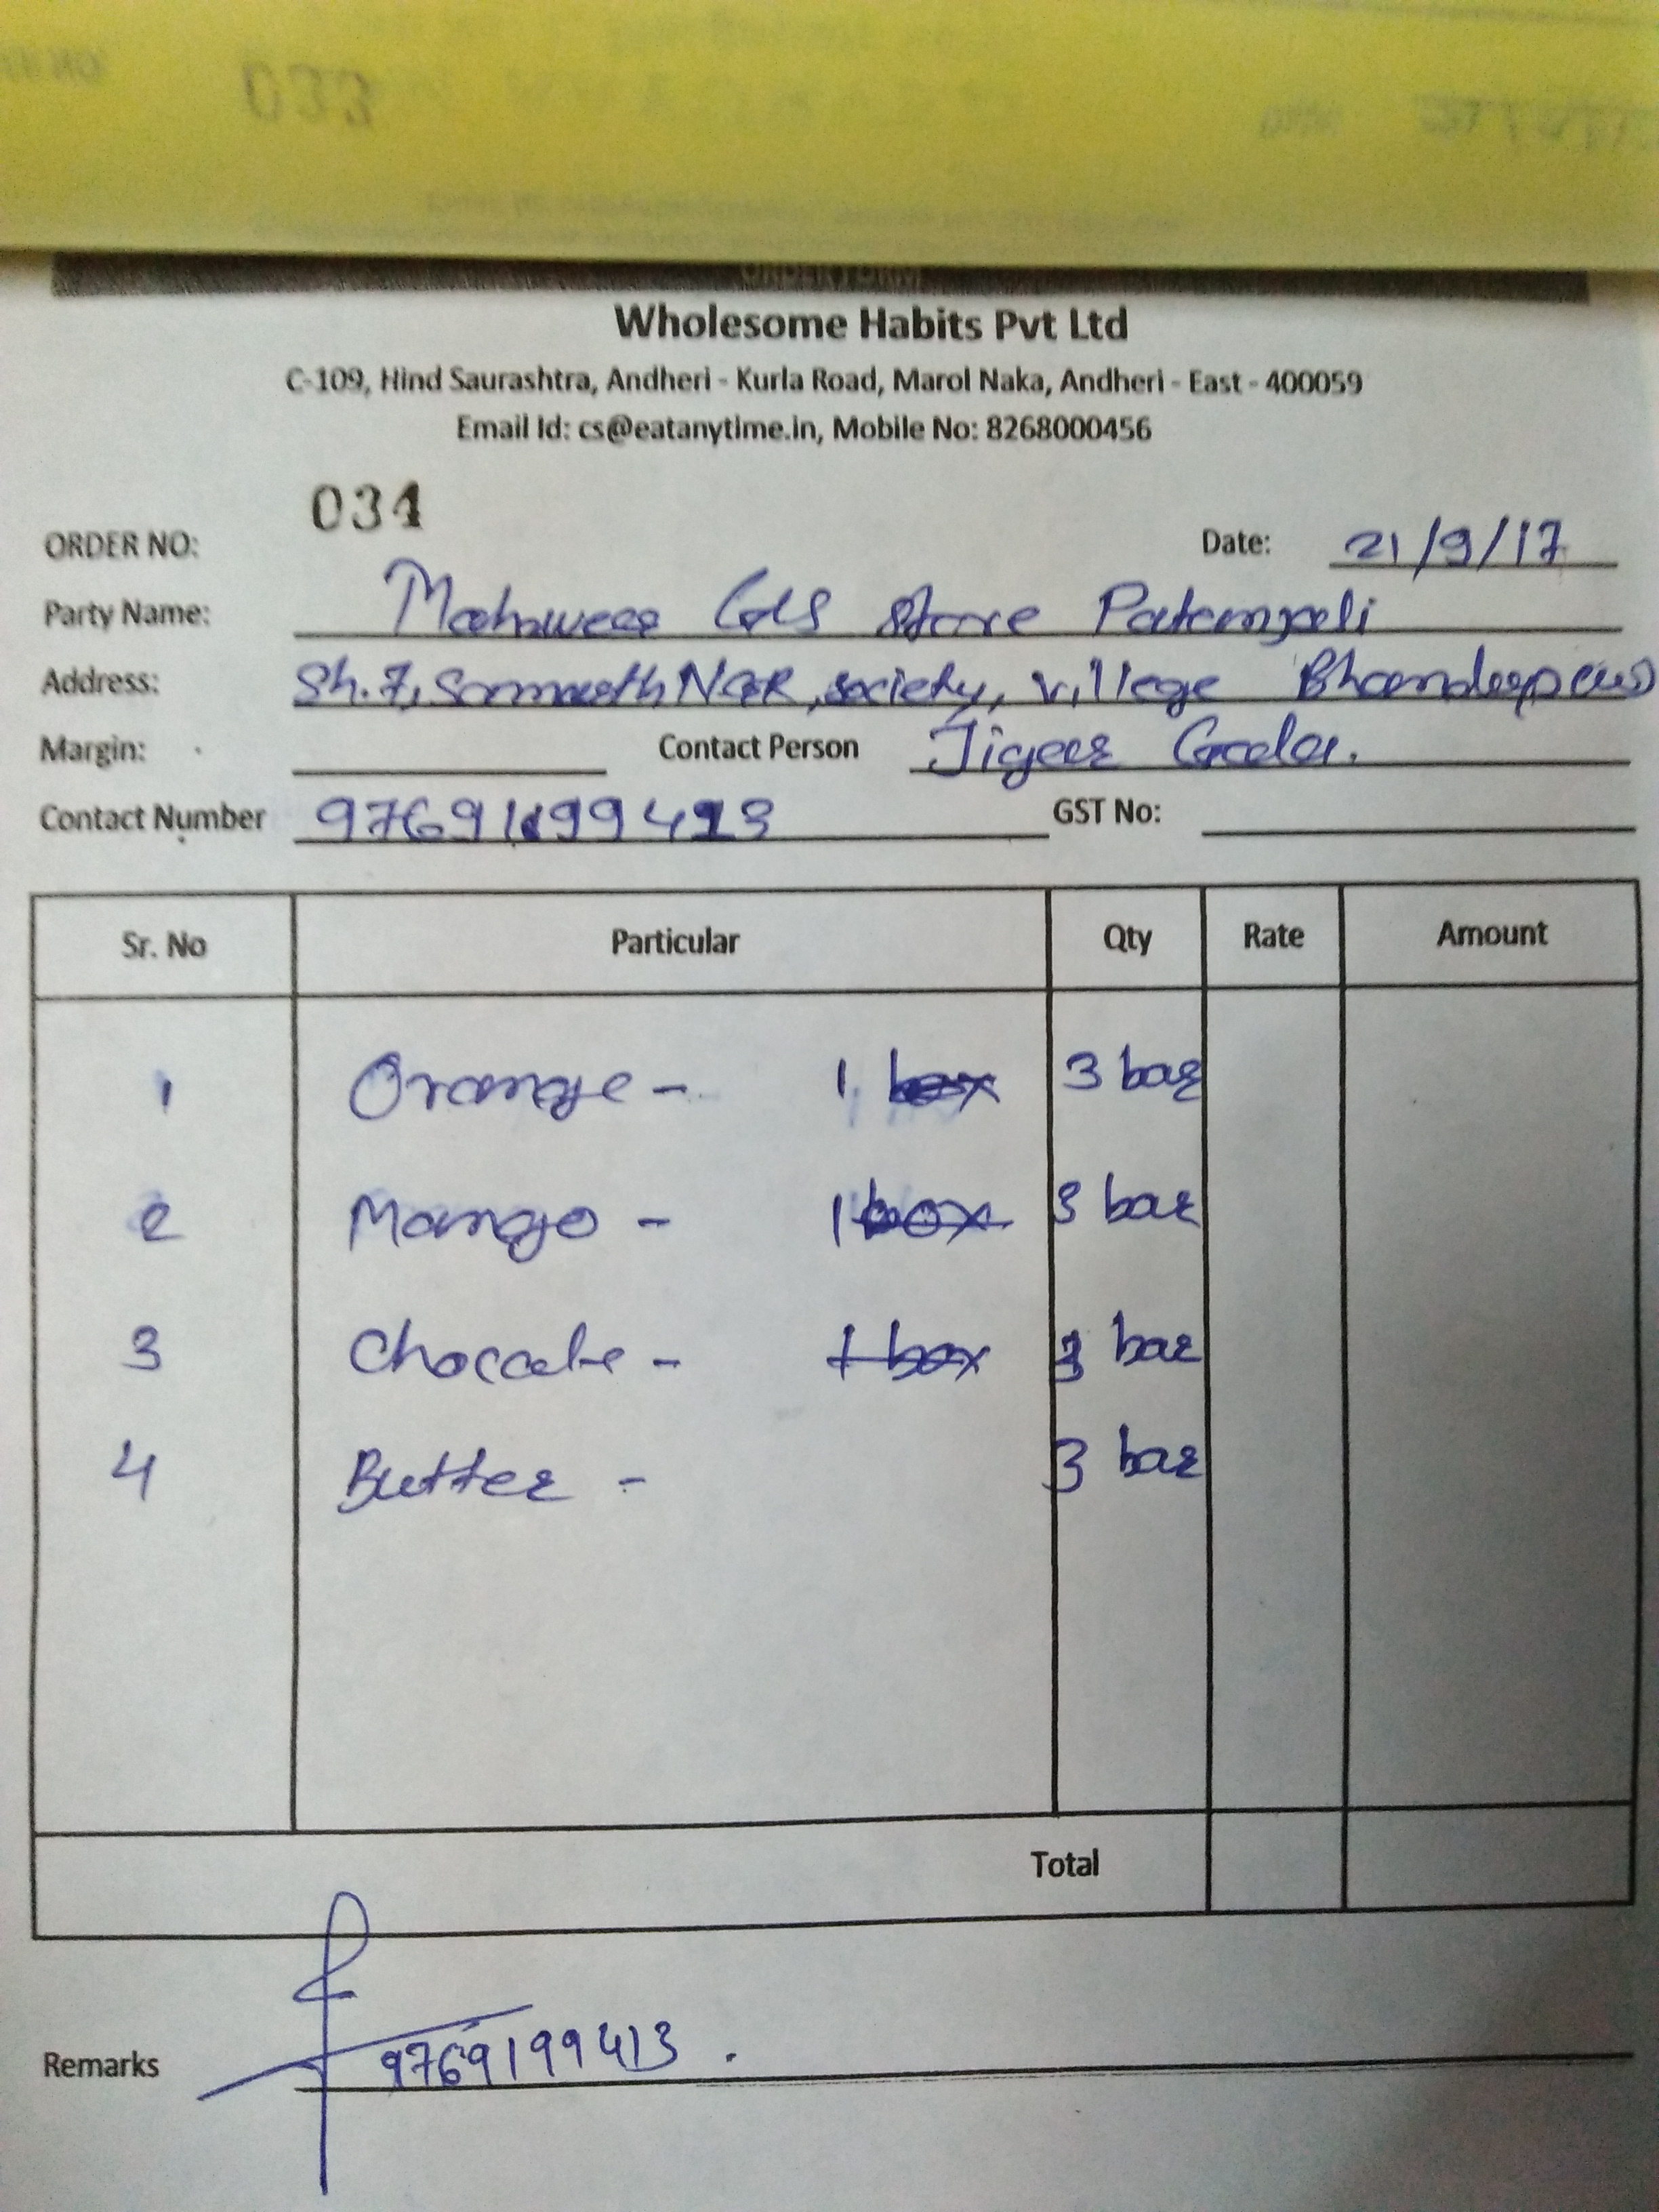 033
ORDER FORM
Wholesome Habits Pvt Ltd
C-109, Hind Saurashtra, Andheri - Kurla Road, Marol Naka, Andheri - East - 400059
Email Id: cs@eatanytime.in, Mobile No: 8268000456
034
ORDER NO: Date: 21/9/17
Party Name: Store Patanjali
Address: Sh.7, society, village
Margin: Contact Person Jigar Gada.
Contact Number GST No:
Sr. No Particular Qty Rate Amount
1 Orange - 1 box 3 bar
2 Mango - 1 box 3 bar
3 - 1 box 3 bar
4 Butter - 3 bar
Total
Remarks 9769199413.